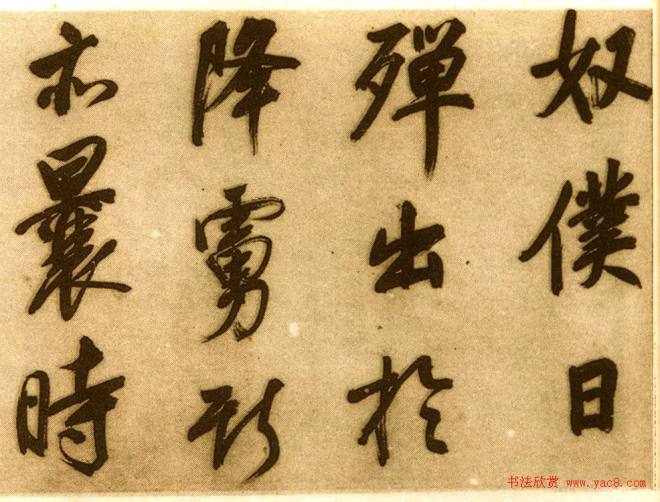 奴僕日
殫出於
降虜斯
亦曩時
书法欣赏 www.yac8.com